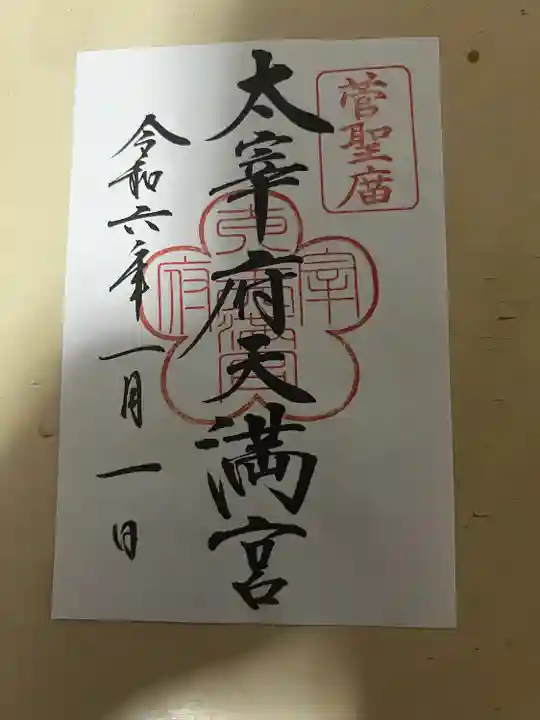 菅聖庿
太宰府天満宮
令和六年一月一日